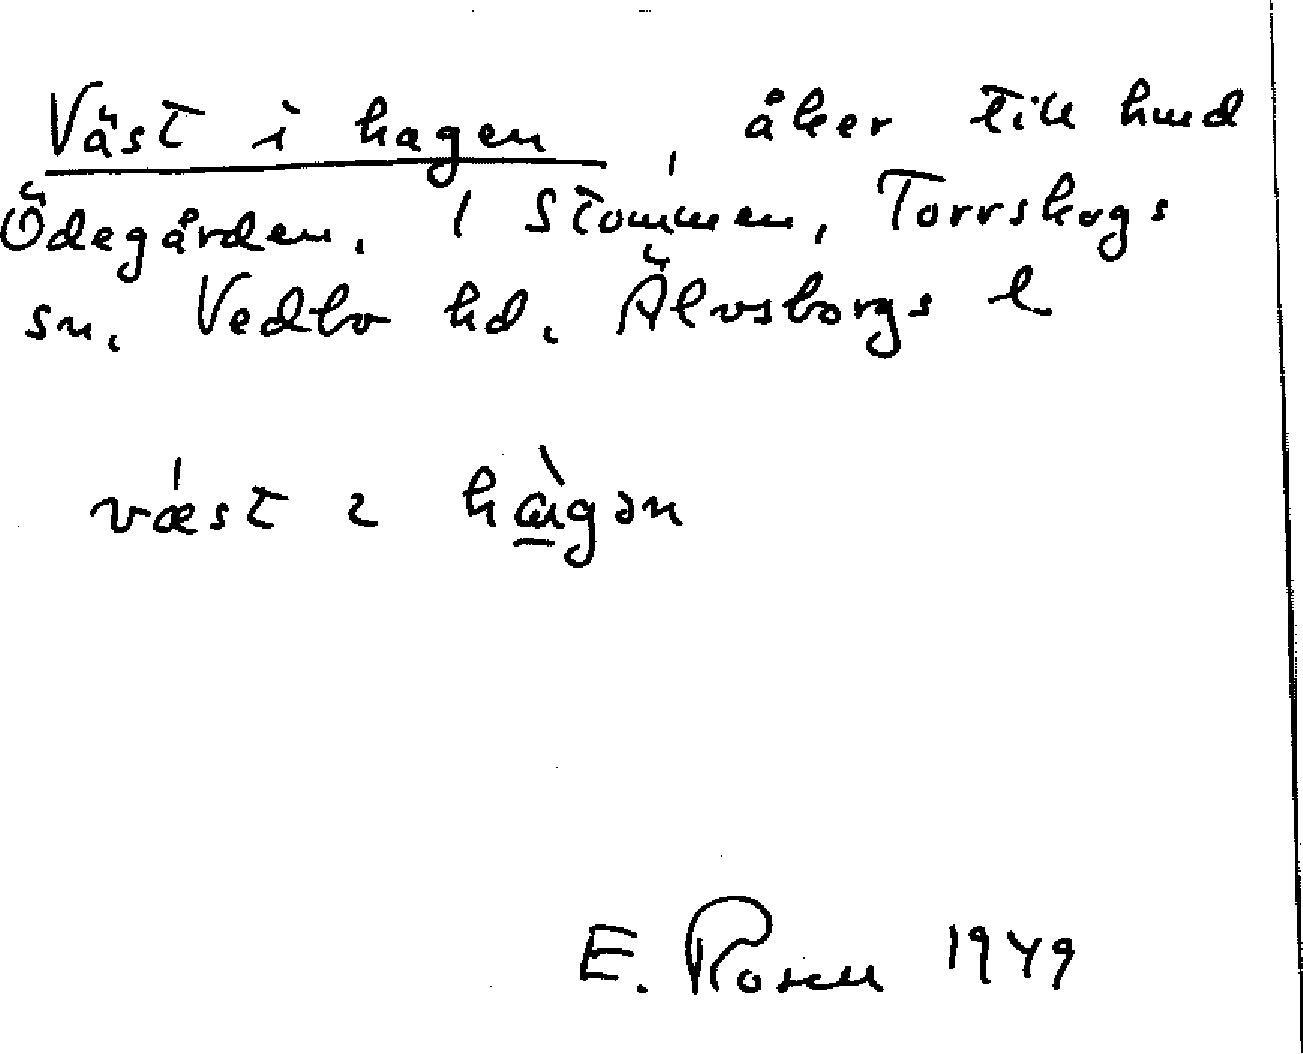 Väst i hagen, åker till hmd
Ödegården. 1 Stommen, Torrskogs
sn. Vedbo hd. Älvsborgs l
væst ɩ hągən
E. Rosell 1949